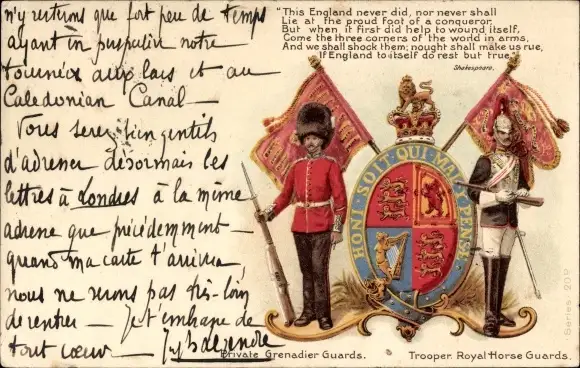 n'y restons que fort peu de temps
ayant in perpective notre
tournée aux lacs et au
Caledonian Canal —
Vous serez bien gentils
d'adresser désormais les
lettres à Londres à la même
adresse que précédemment —
quand ma carte t'arrivera,
nous ne serons pas très-loin
de rentrer — Je t'embrasse de
tout cœur —
"This England never did, nor never shall
Lie at the proud foot of a conqueror,
But when it first did help to wound itself,
Come the three corners of the world in arms,
And we shall shock them; nought shall make us rue,
If England to itself do rest but true."
Shakespeare.
HONI · SOIT · QUI · MAL · Y · PENSE
Private Grenadier Guards.
Trooper Royal Horse Guards.
Series 20